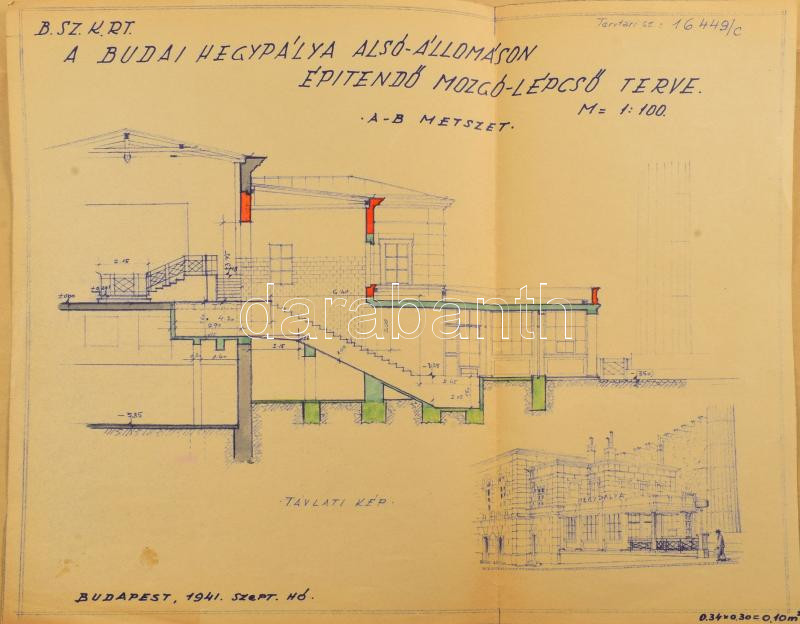 B. SZ. K. RT.
Tervtári sz.: 16.449/c
A BUDAI HEGYPÁLYA ALSÓ-ÁLLOMÁSON
ÉPITENDŐ MOZGÓ-LÉPCSŐ TERVE.
M = 1:100.
·A-B METSZET·
2.15
±0.00
6.40
4.20
2.15
-3.35
2.45
2.10
-5.35
darabanth
HEGYPÁLYA
·TÁVLATI KÉP·
BUDAPEST, 1941. SZEPT. HÓ.
0.34×0.30=0.10m²